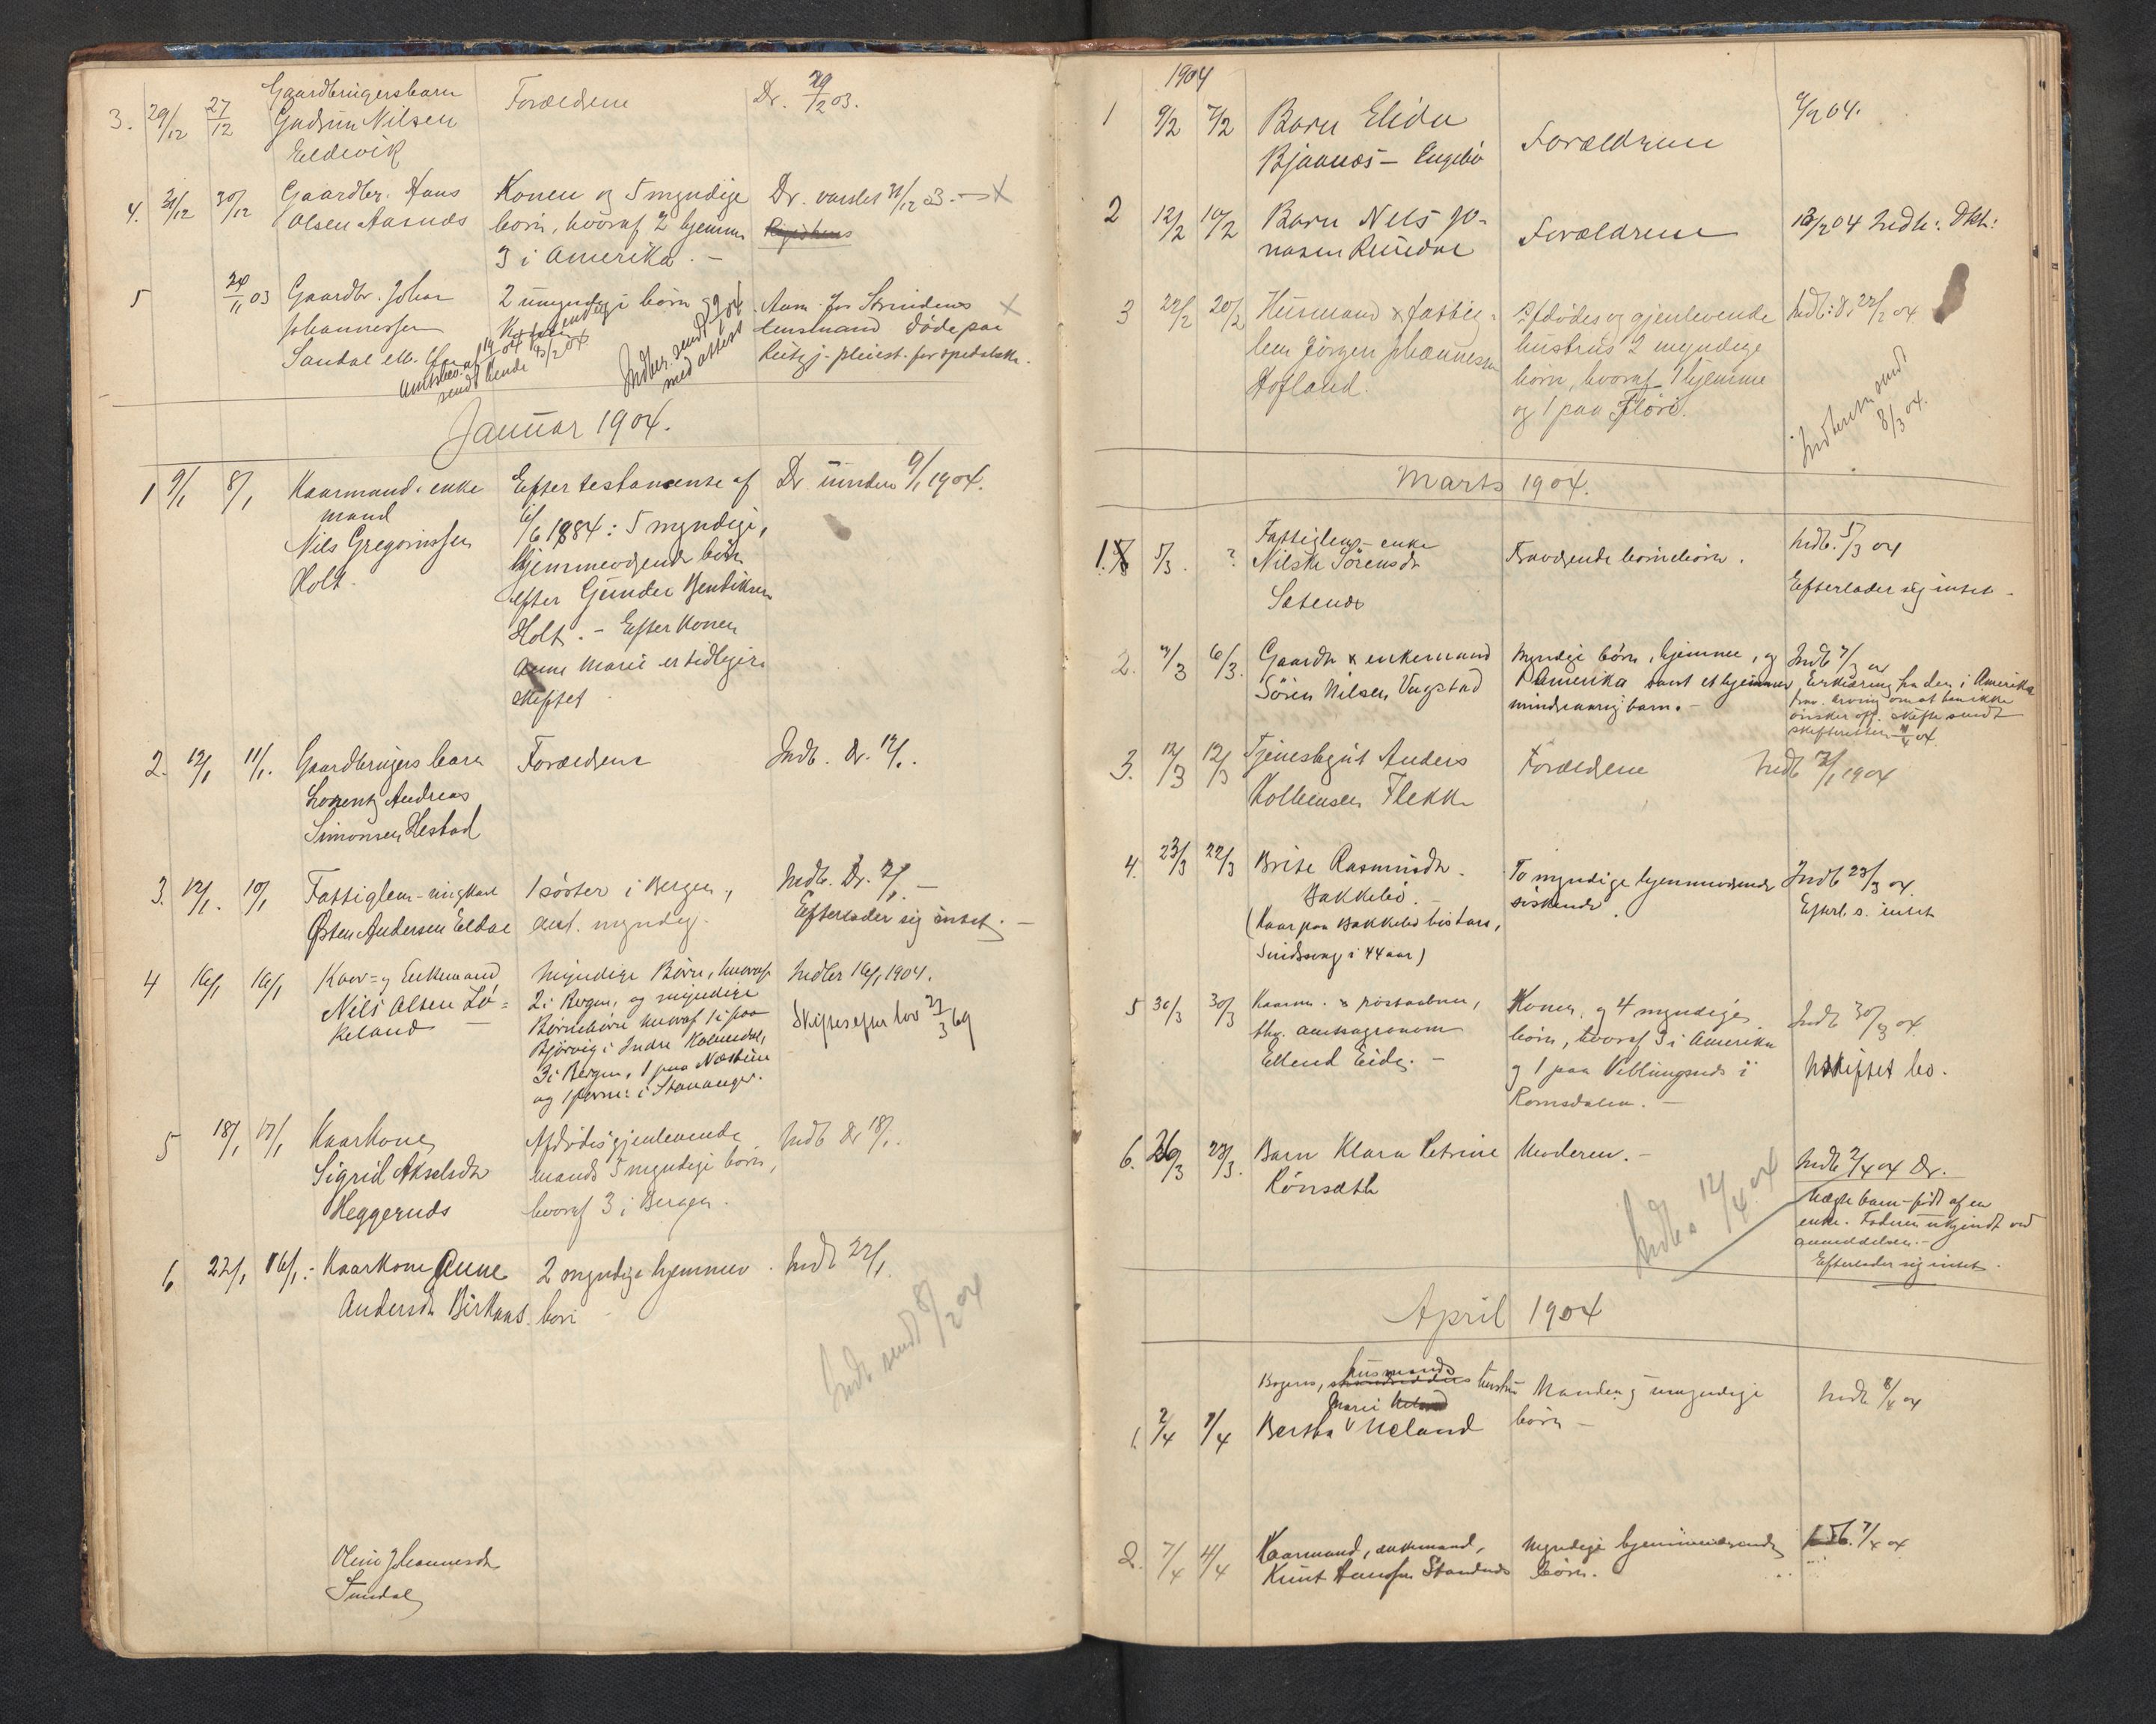 3. 29/12 27/12 Gaardbrugersbarn Forældrene Dr. 29/12 03.
Gudrun Nilsen
Eldevik
4. 31/12 30/12 Gaardbr. Hans Konen og 5 myndige Dr. varslet 31/12 03. — X
Olsen Aasnæs børn, hvoraf 2 hjemme
3 i Amerika. —
5 24/11 03 Gaardbr. Johan 2 umyndige børn Anm. fra Strindens X
Johannessen lensmand døde paa
Sandal Reitgj. pleiest. for spedalske.
sendt hende
Indber. sendt
med attest
Januar 1904.
1 9/1 8/1 Kaarmand, enke Efter testamente af Dr. 9/1 1904.
mand 6/6 1884: 5 myndige,
Nils Gregoriussen hjemmeværende børn
Holt. efter Gunder Bendiksen
Holt. — Efter konen
Anne Marie er tidligere
skiftet
2. 12/1 11/1. Gaardbrugers barn Forældrene Indb. Dr. 12/1.
Lorentz Andreas
Simonsen Hestad
3. 12/1. 10/1 Fattiglem - ungkarl 1 søster i Bergen, Indb. Dr. 12/1 —
Østen Andersen Eldal ant. myndig. Efterlader sig intet. —
4 16/1 16/1 Kaar- og Enkemand Myndige Børn, hvoraf Indber 16/1 1904.
Nils Olsen Lø- 2 i Bergen, og myndige Skiftes efter lov
keland — Børnebørn hvoraf 1 paa
Bjørvig i Indre Holmedal,
3 i Bergen, 1 paa
og 1 i Stavanger.
5 18/1 17/1 Kaarkone Afdødes gjenlevende Indb Dr 18/1.
Sigrid Akselsdtr mands 5 myndige børn,
Heggernæs hvoraf 3 i Bergen.
6 22/1 16/1 Kaarkone Anne 2 myndige hjemmev. Indb 22/1
Andersdtr Birknæs. børn
Indb sendt 8/2 04
Oline Johannesdtr
Sandal
1904
1 9/2 7/2 Barn Elida Forældrene 9/2 04.
Bjaanæs — Engebø
2 12/2 10/2 Barn Nels Jo- Forældrene 13/2 04 Indb: Dkt:
nasen
3 22/2 20/2 Husmand & fattig- Afdødes og gjenlevende Indb: Dr 22/2 04
lem Jørgen Johannessen hustrus 2 myndige
Hofland. børn, hvoraf 1 hjemme
og 1 paa Florø.
Indberetn sendt
8/3 04.
Marts 1904.
1. 5/3. ? Fattiglem - enke Fraværende børnebørn. Indb. 5/3 04
Nilske Sørensdtr Efterlader sig intet —
Sætenæs
2. 7/3 6/3. Gaardbr & enkemand Myndige børn, hjemme, og Indb 7/3 04
Søren Nilsen Vagstad i Amerika samt et hjemmev Erklæring fra den i Amerika
mindreaarig barn. — frav. arving om at han ikke
ønsker off. skifte sendt
skifteretten
3. 12/3 12/3 Tjenestegut Anders Forældrene Indb 1904
Kolbensen Flekke
4. 23/3 22/3 Brite Rasmusdtr. To myndige hjemmeværende Indb 23/3 04.
Bakkebø. — søskende. Efterl. s. intet
(Kaar paa Bakkebø
Sindssvag i 44 aar)
5 30/3 30/3 Kaarm. & postaabner, Konen, og 4 myndige Indb 30/3 04.
fhv. amtsagronom børn, hvoraf 3 i Amerika Uskiftet bo.
Ellend Eide. — og 1 paa Veblungsnæs i
Romsdalen. —
6. 26/3 23/3. Barn Klara Petrine Moderen. — Indb 2/4 04 Dr.
Rønsæth Uægte barn - født af en
enke. Faderen ukjendt ved
anmeldelsen. —
Efterlader sig intet.
Indb 12/4 04
April 1904
husmands
hustru Manden og umyndige Indb 8/4 04
Marie
1. 2/4 1/4 Bertha Ueland børn —
2. 7/4 4/4 Kaarmand, enkemand, Myndige hjemmeværende 7/4 04
Knut Hanssen Standnæs børn.